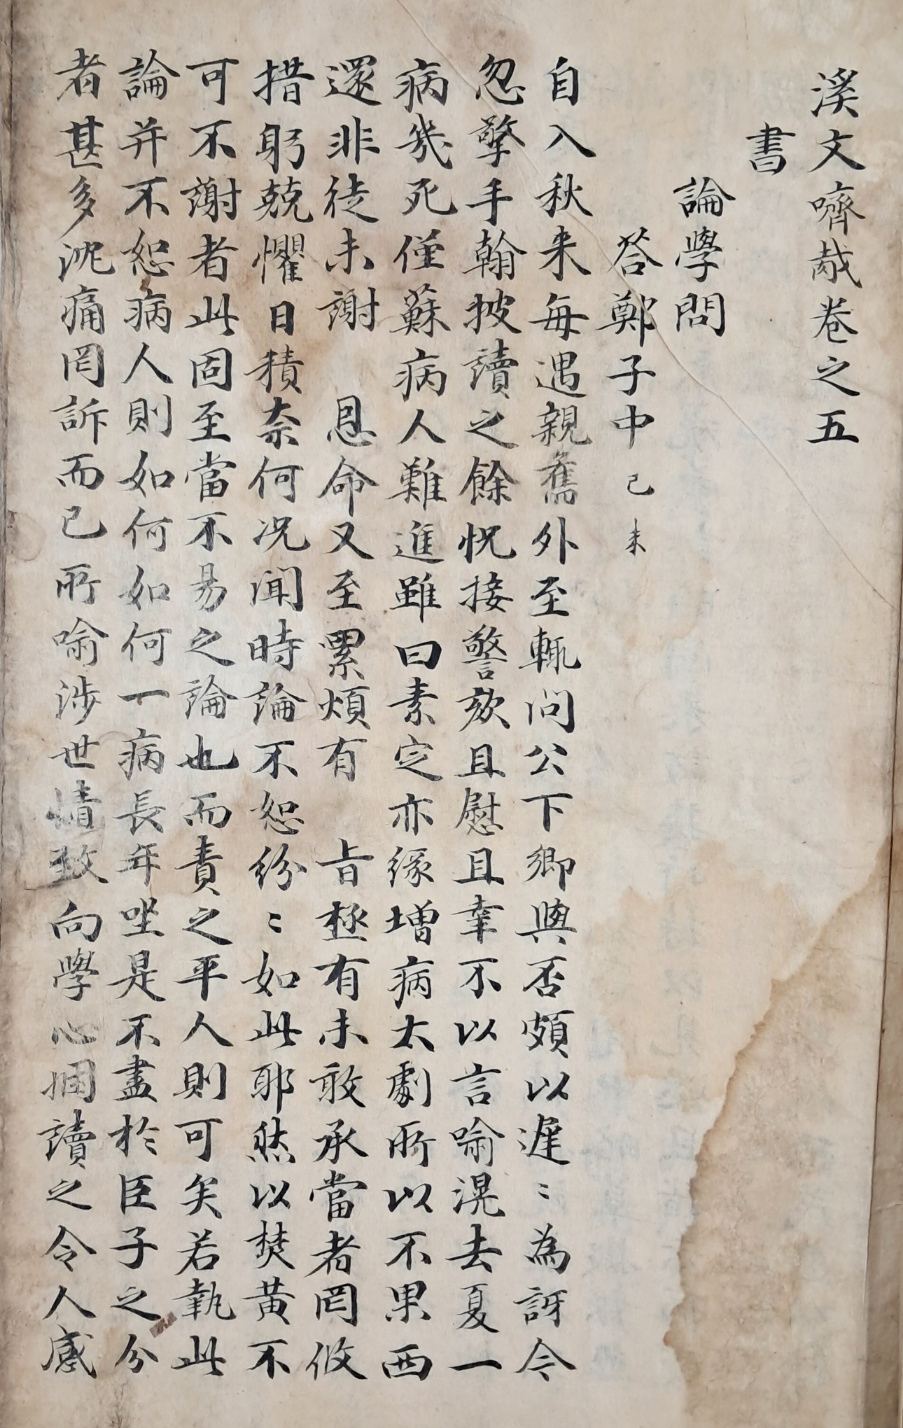 溪文嚌胾卷之五
書
論學問
答鄭子中 己未
自入秋来每遇親舊外至輒問公下鄉與否頗以遲〻為訝令
忽擎手翰披讀之餘怳接謦欬且慰且幸不以言喻滉去夏一
病幾死僅蘇病人難進雖曰素定亦緣增病太劇所以不果西
還非徒未謝 恩命又至累煩有 旨㮣有未敢承當者罔攸
措躬兢懼日積奈何况聞時論不恕紛〻如此耶然以焚黃不
可不謝者此固至當不易之論也而責之平人則可矣若執此
論并不恕病人則如何如何一病長年坐是不盡於臣子之分
者甚多沈痛罔訴而已所喻涉世情致向學心悃讀之令人感